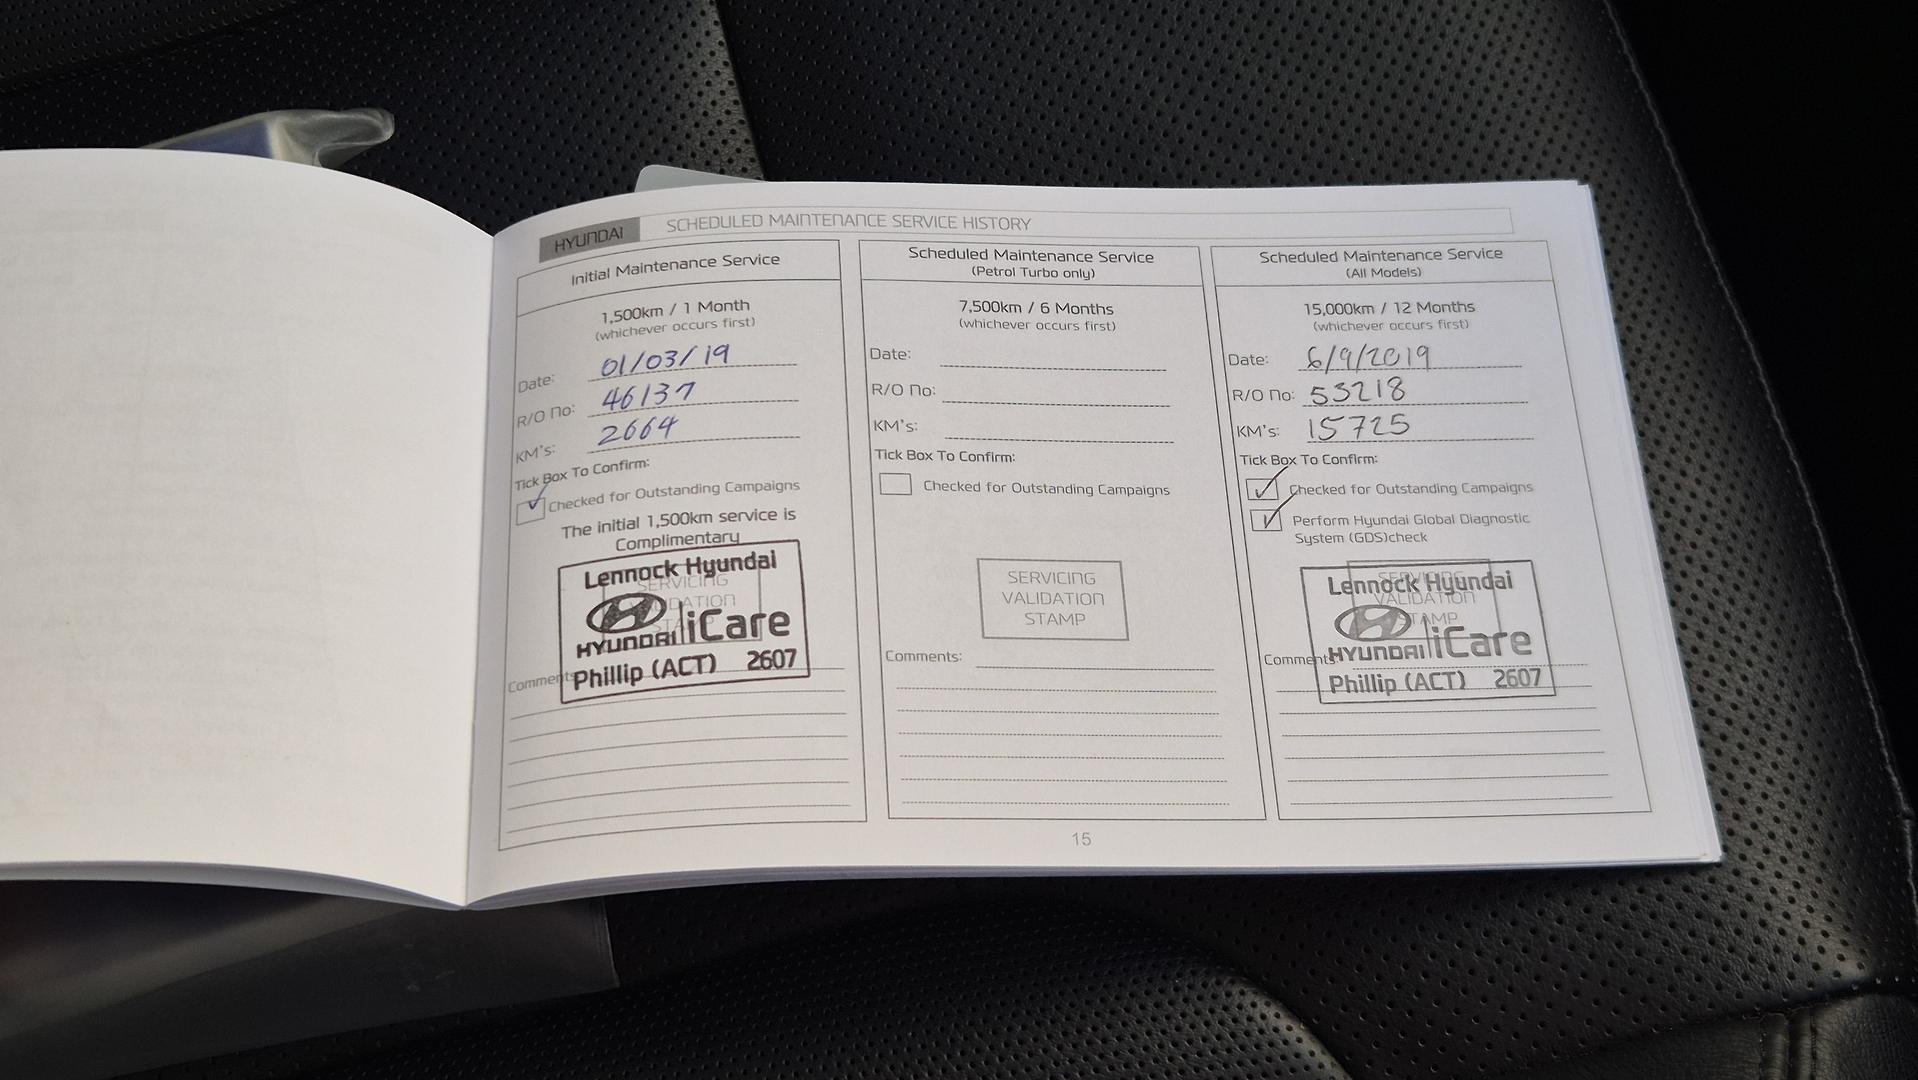 HYUNDAI SCHEDULED MAINTENANCE SERVICE HISTORY
Initial Maintenance Service
1,500km / 1 Month
(whichever occurs first)
Date: 01/03/19
R/O No: 46137
KM's: 2664
Tick Box To Confirm:
Checked for Outstanding Campaigns
The initial 1,500km service is
Complimentary
Lennock Hyundai
HYUNDAI iCare
Phillip (ACT) 2607
Comments
Scheduled Maintenance Service
(Petrol Turbo only)
7,500km / 6 Months
(whichever occurs first)
Date:
R/O No:
KM's:
Tick Box To Confirm:
Checked for Outstanding Campaigns
SERVICING
VALIDATION
STAMP
Comments:
Scheduled Maintenance Service
(All Models)
15,000km / 12 Months
(whichever occurs first)
Date: 6/9/2019
R/O No: 53218
KM's: 15725
Tick Box To Confirm:
Checked for Outstanding Campaigns
Perform Hyundai Global Diagnostic
System (GDS)check
Lennock Hyundai
HYUNDAI iCare
Phillip (ACT) 2607
Comments:
15